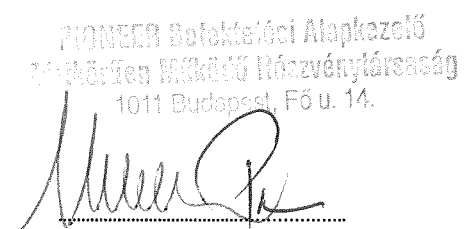 PIONEER Befektetési Alapkezelő
Zártkörűen Működő Részvénytársaság
1011 Budapest, Fő u. 14.